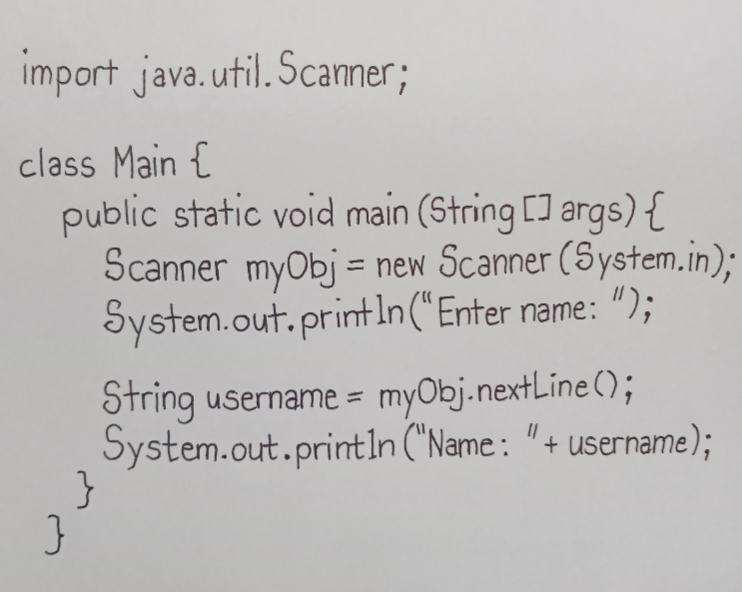 import java.util.Scanner;
class Main {
public static void main (String [] args) {
Scanner myObj = new Scanner (System.in);
System.out.println("Enter name: ");
String username = myObj.nextLine();
System.out.println ("Name: " + username);
}
}